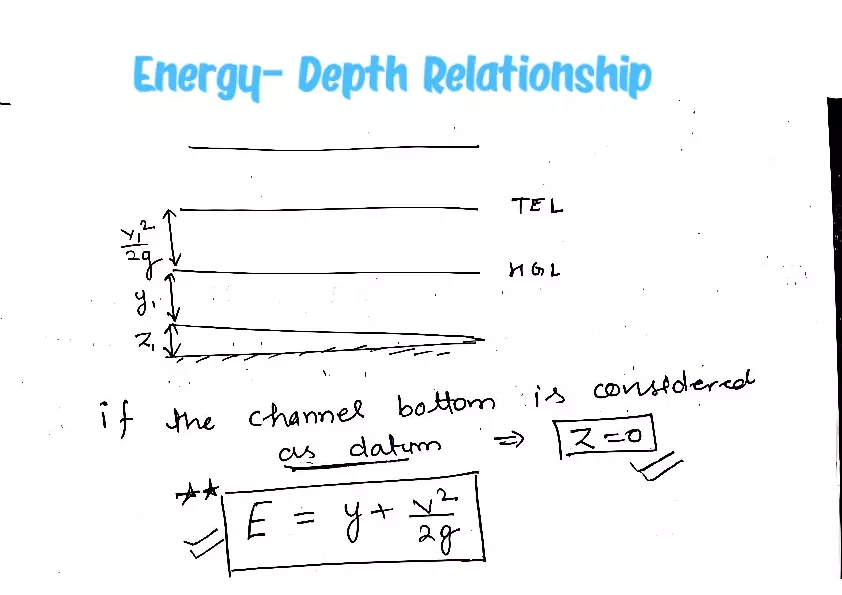 Energy- Depth Relationship
TEL
v₁²/2g
HGL
y₁
Z₁
if the channel bottom is considered
as datum ⇒ Z=0
★★
E = y + v²/2g